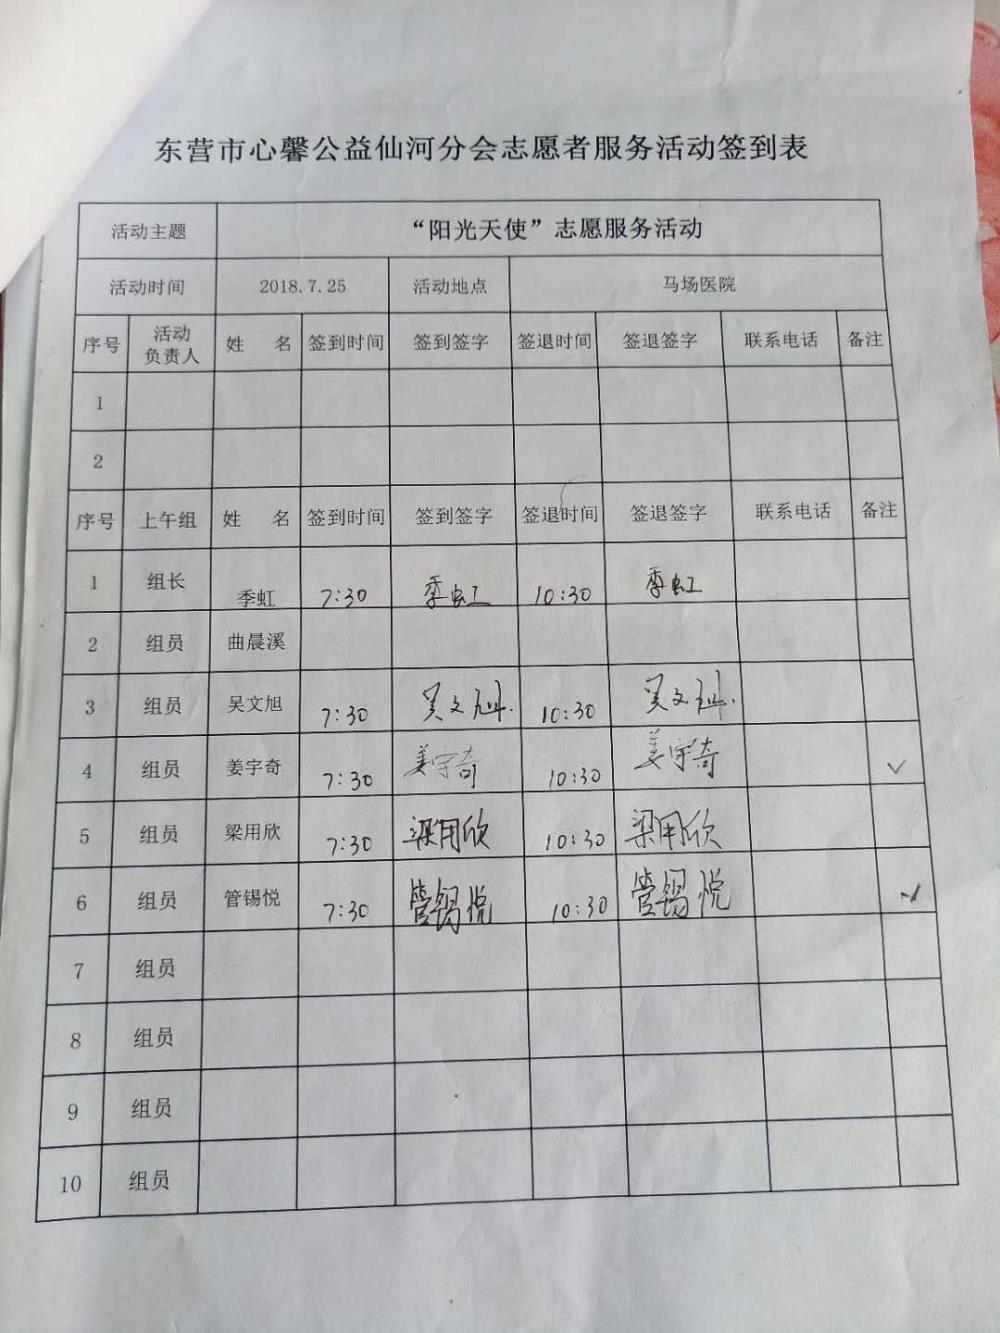 东营市心馨公益仙河分会志愿者服务活动签到表
活动主题 “阳光天使”志愿服务活动
活动时间 2018.7.25 活动地点 马场医院
序号 活动负责人 姓 名 签到时间 签到签字 签退时间 签退签字 联系电话 备注
1
2
序号 上午组 姓 名 签到时间 签到签字 签退时间 签退签字 联系电话 备注
1 组长 季虹 7:30 季虹 10:30 季虹
2 组员 曲晨溪
3 组员 吴文旭 7:30 吴文旭. 10:30 吴文旭.
4 组员 姜宇奇 7:30 姜宇奇 10:30 姜宇奇 ✓
5 组员 梁用欣 7:30 梁用欣 10:30 梁用欣
6 组员 管锡悦 7:30 管锡悦 10:30 管锡悦 ✓
7 组员
8 组员
9 组员
10 组员